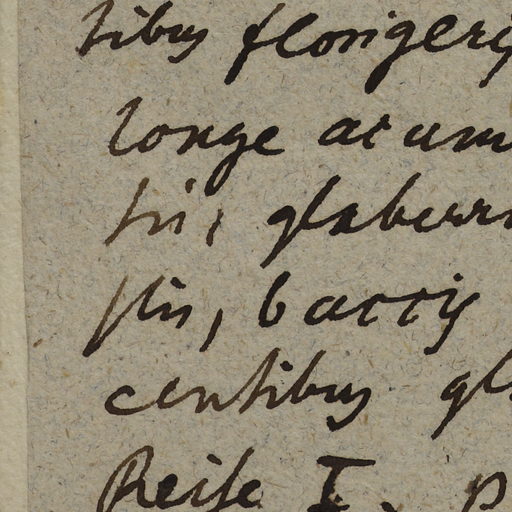 tibus florigeris
longe acum
tis, glaberri
stis, baccis
centibus gl
Reise I. p